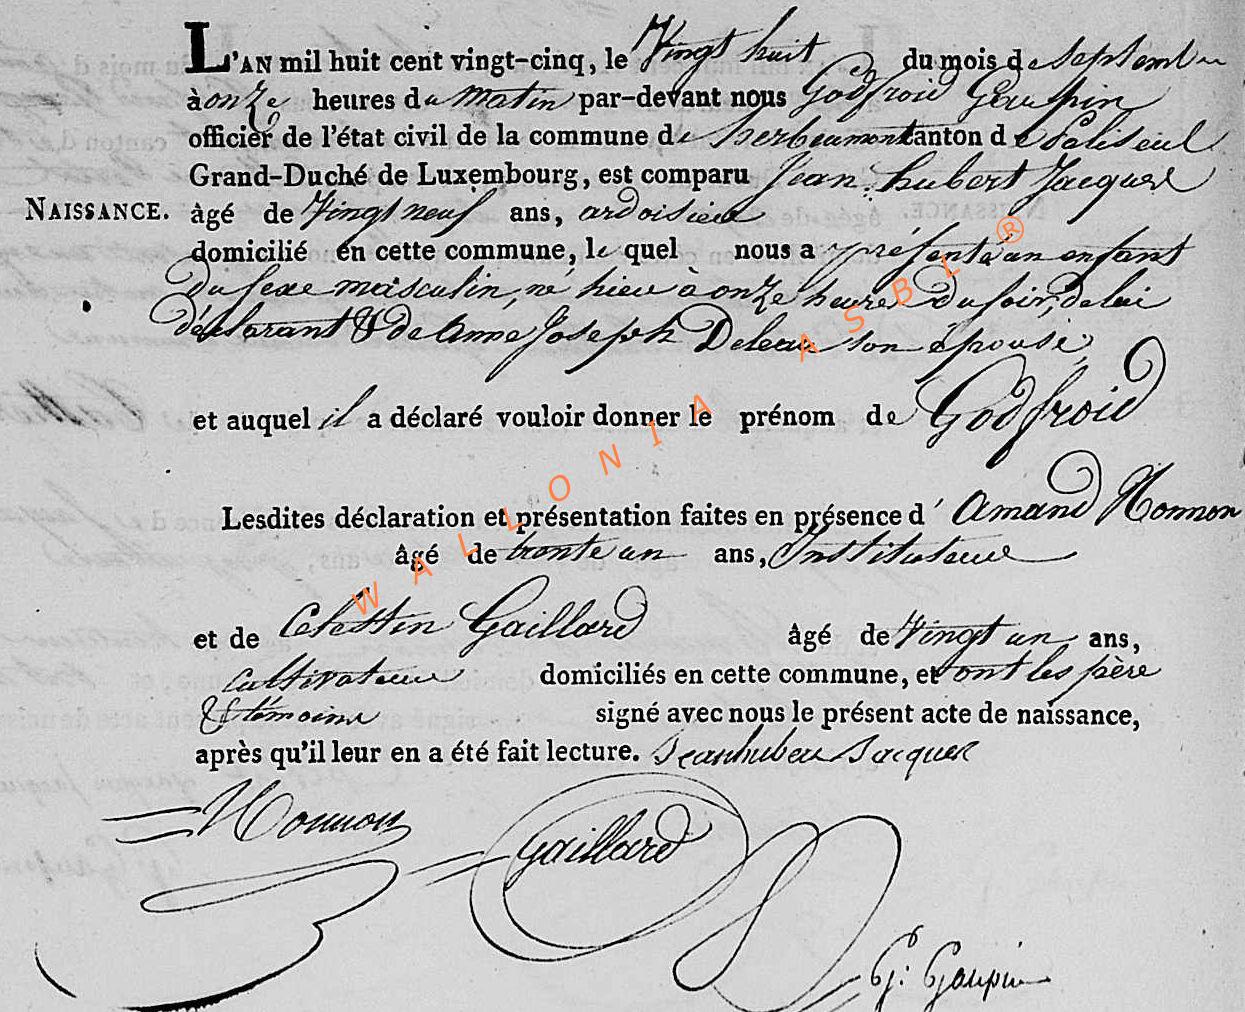 L'AN mil huit cent vingt-cinq, le Vingt huit du mois de septembre
à onze heures du matin par-devant nous Godfroid Gaupin
officier de l'état civil de la commune de herbeumont canton de Paliseul
Grand-Duché de Luxembourg, est comparu Jean hubert Jacques
NAISSANCE. âgé de Vingt neuf ans, ardoisieur
domicilié en cette commune, le quel nous a présenté un enfant
du sexe masculin, né hier à onze heures du soir, de lui
déclarant & de anne Joseph son épouse,
et auquel il a déclaré vouloir donner le prénom de Godfroid
Lesdites déclaration et présentation faites en présence d'Amand Honnon
âgé de trente un ans, Instituteur
et de Celestin Gaillard âgé de Vingt un ans,
cultivateur domiciliés en cette commune, et ont les père
& témoins signé avec nous le présent acte de naissance,
après qu'il leur en a été fait lecture. Jeanhuber Jacques
Honnon
Gaillard
G: Gaupin
WALLONIA ASBL ®